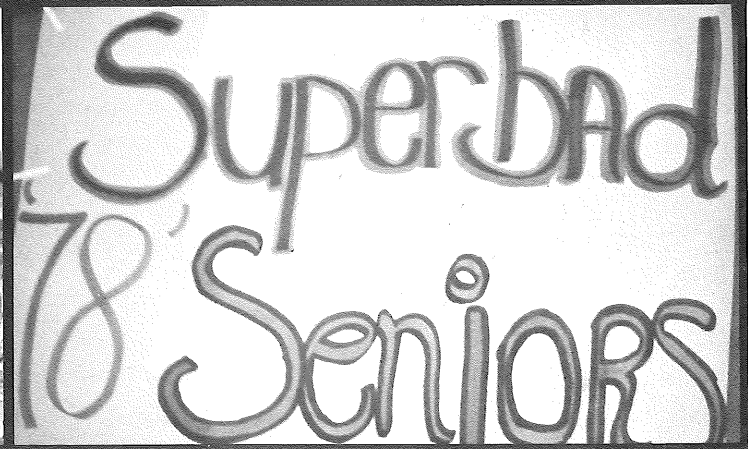 SuperbAd
'78' SeniORS